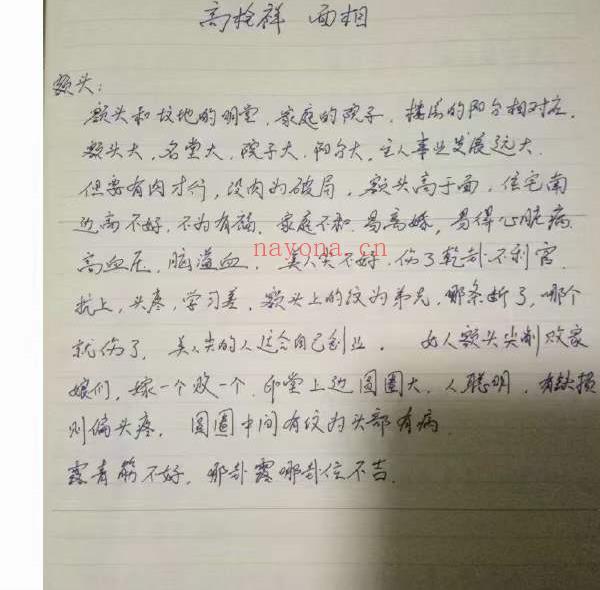 高栓祥 面相
额头：
额头和坟地的明堂，家庭的院子，楼房的阳台相对应。
额头大，名堂大，院子大，阳台大，主人事业发展远大。
但要有肉才行，没肉为破局，额头高于面，住宅南
边高不好，不为有福，家庭不和，易离婚，易得心脏病
高血压，脑溢血，美人尖不好，伤了乾卦不利官，
抗上，头疼，学习差，额头上的纹为弟兄，哪条断了，哪个
就伤了，美人尖的人适合自己创业。 女人额头尖削败家
娘们，嫁一个败一个，印堂上边圆圈大，人聪明，有缺损
则偏头疼， 圆圈中间有纹为头部有病
露青筋不好，哪卦露哪卦位不吉.
nayona.cn